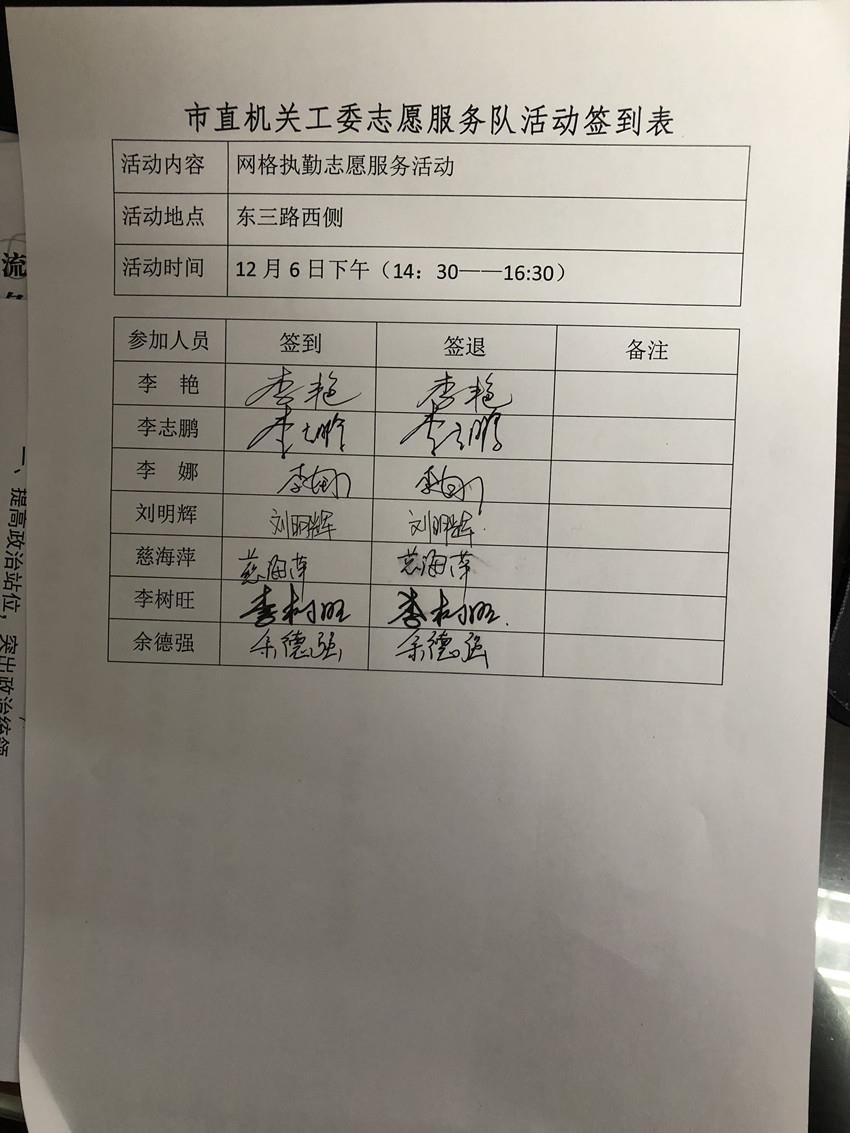 市直机关工委志愿服务队活动签到表
活动内容 网格执勤志愿服务活动
活动地点 东三路西侧
活动时间 12月6日下午（14：30——16:30）
参加人员 签到 签退 备注
李 艳 李艳 李艳
李志鹏 李志鹏 李志鹏
李 娜 李娜 李娜
刘明辉 刘明辉 刘明辉
慈海萍 慈海萍 慈海萍
李树旺 李树旺 李树旺.
余德强 余德强 余德强
流
一、提高政治站位，突出政治统领